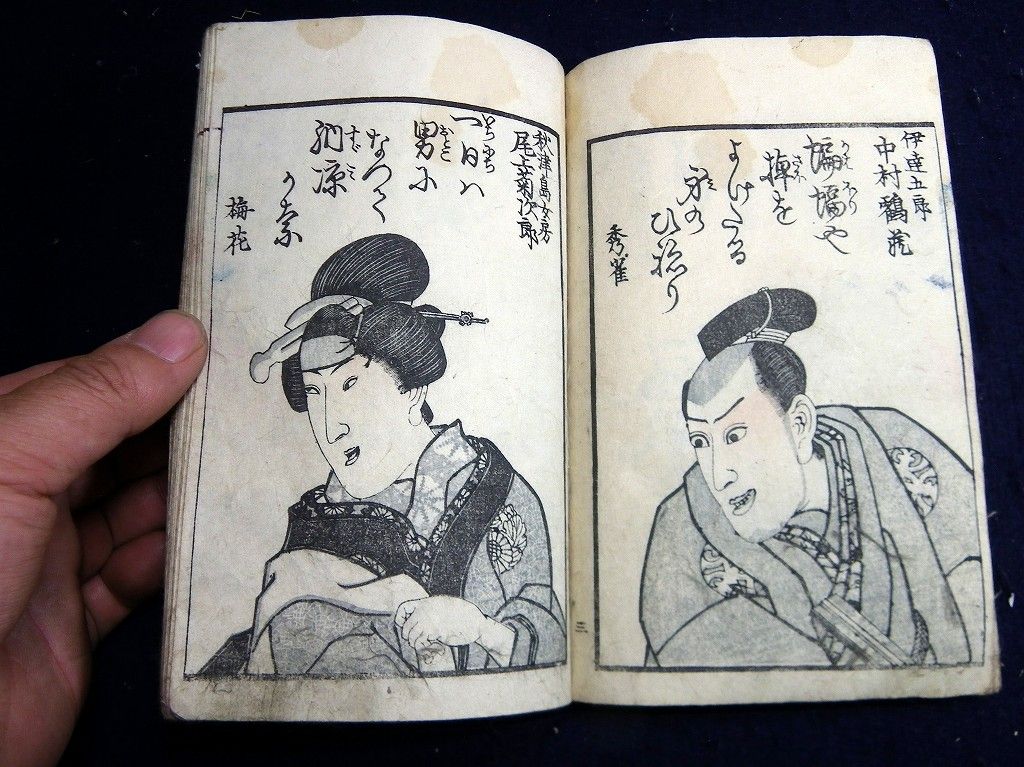 伊達五郎
中村鶴蔵
蝙蝠や
かはほり
棹を
さほ
よけたる
舟の
ひねり
秀雀
秋津島女房
尾上菊次郎
一日ハ
いちにち
男に
おとこ
なつて
納涼
すゞミ
かな
梅花